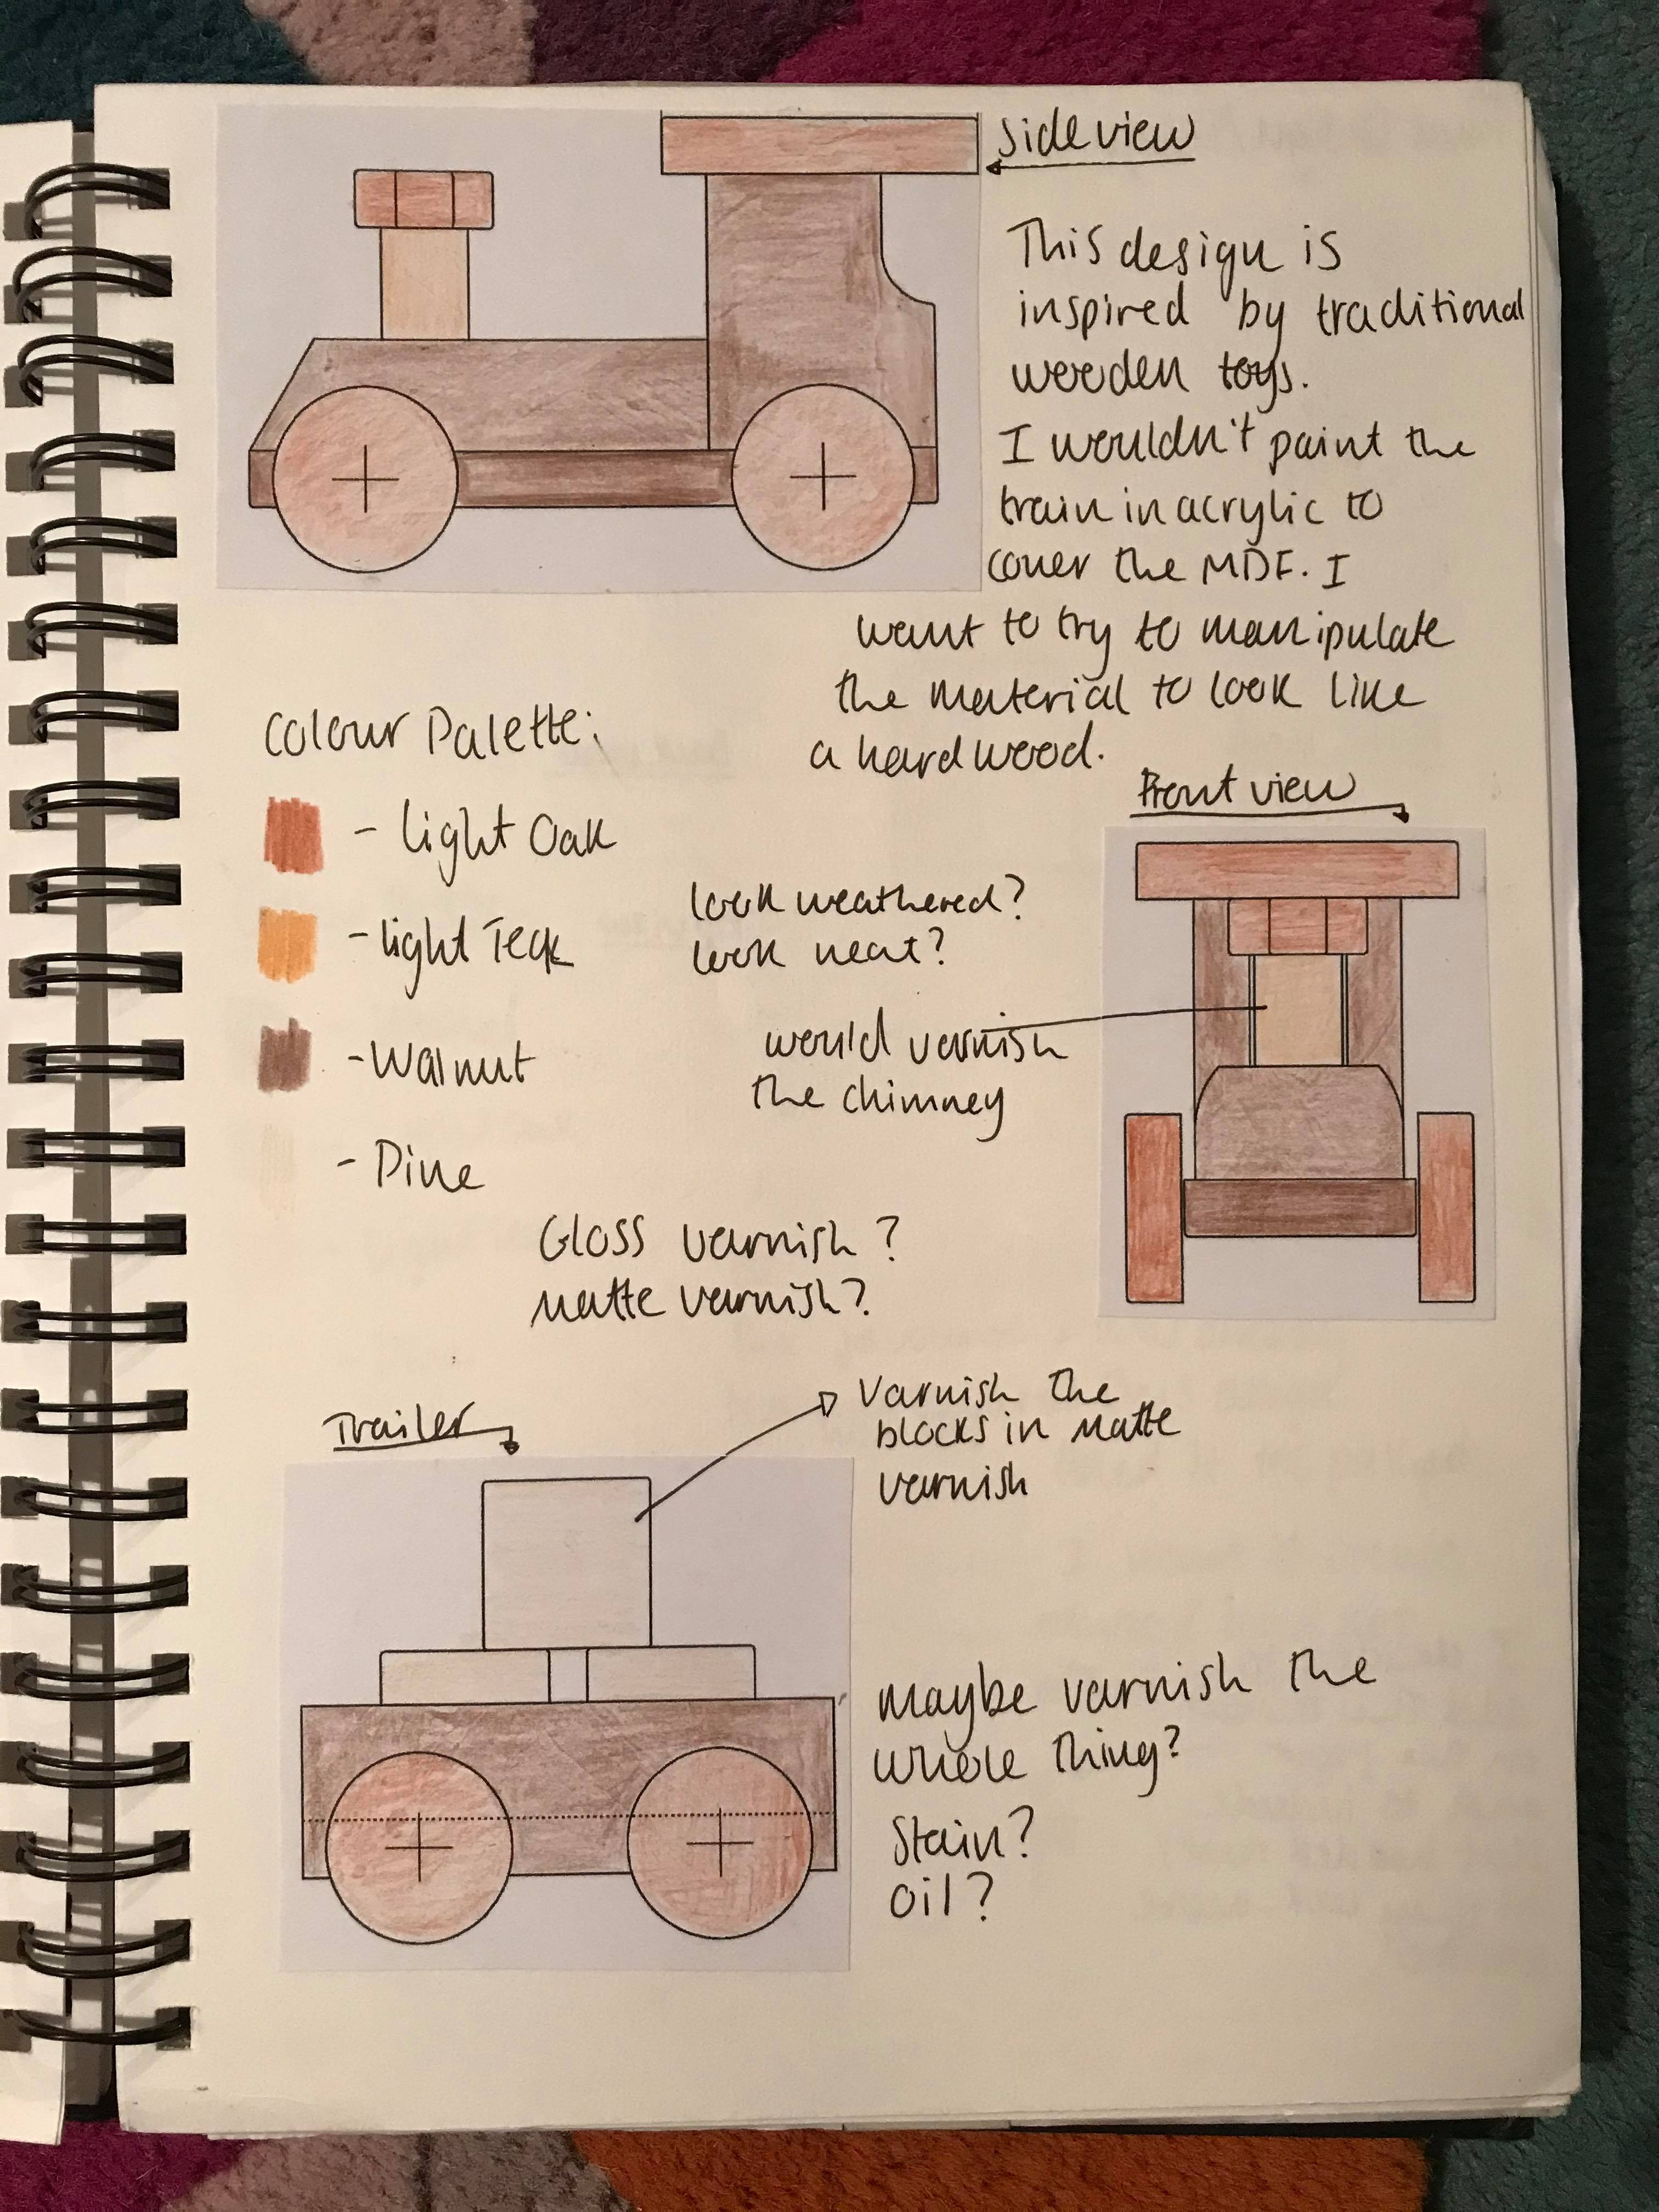 Side view
This design is
inspired by traditional
wooden toys.
I wouldn't paint the
train in acrylic to
cover the MDF. I
want to try to manipulate
the material to look like
a hardwood.
Colour Palette:
- light Oak
- light Teak
- Walnut
- Pine
look weathered?
look neat?
Front view
would varnish
the chimney
Gloss varnish?
Matte varnish?
Trailer
Varnish the
blocks in matte
varnish
Maybe varnish the
whole thing?
Stain?
Oil?